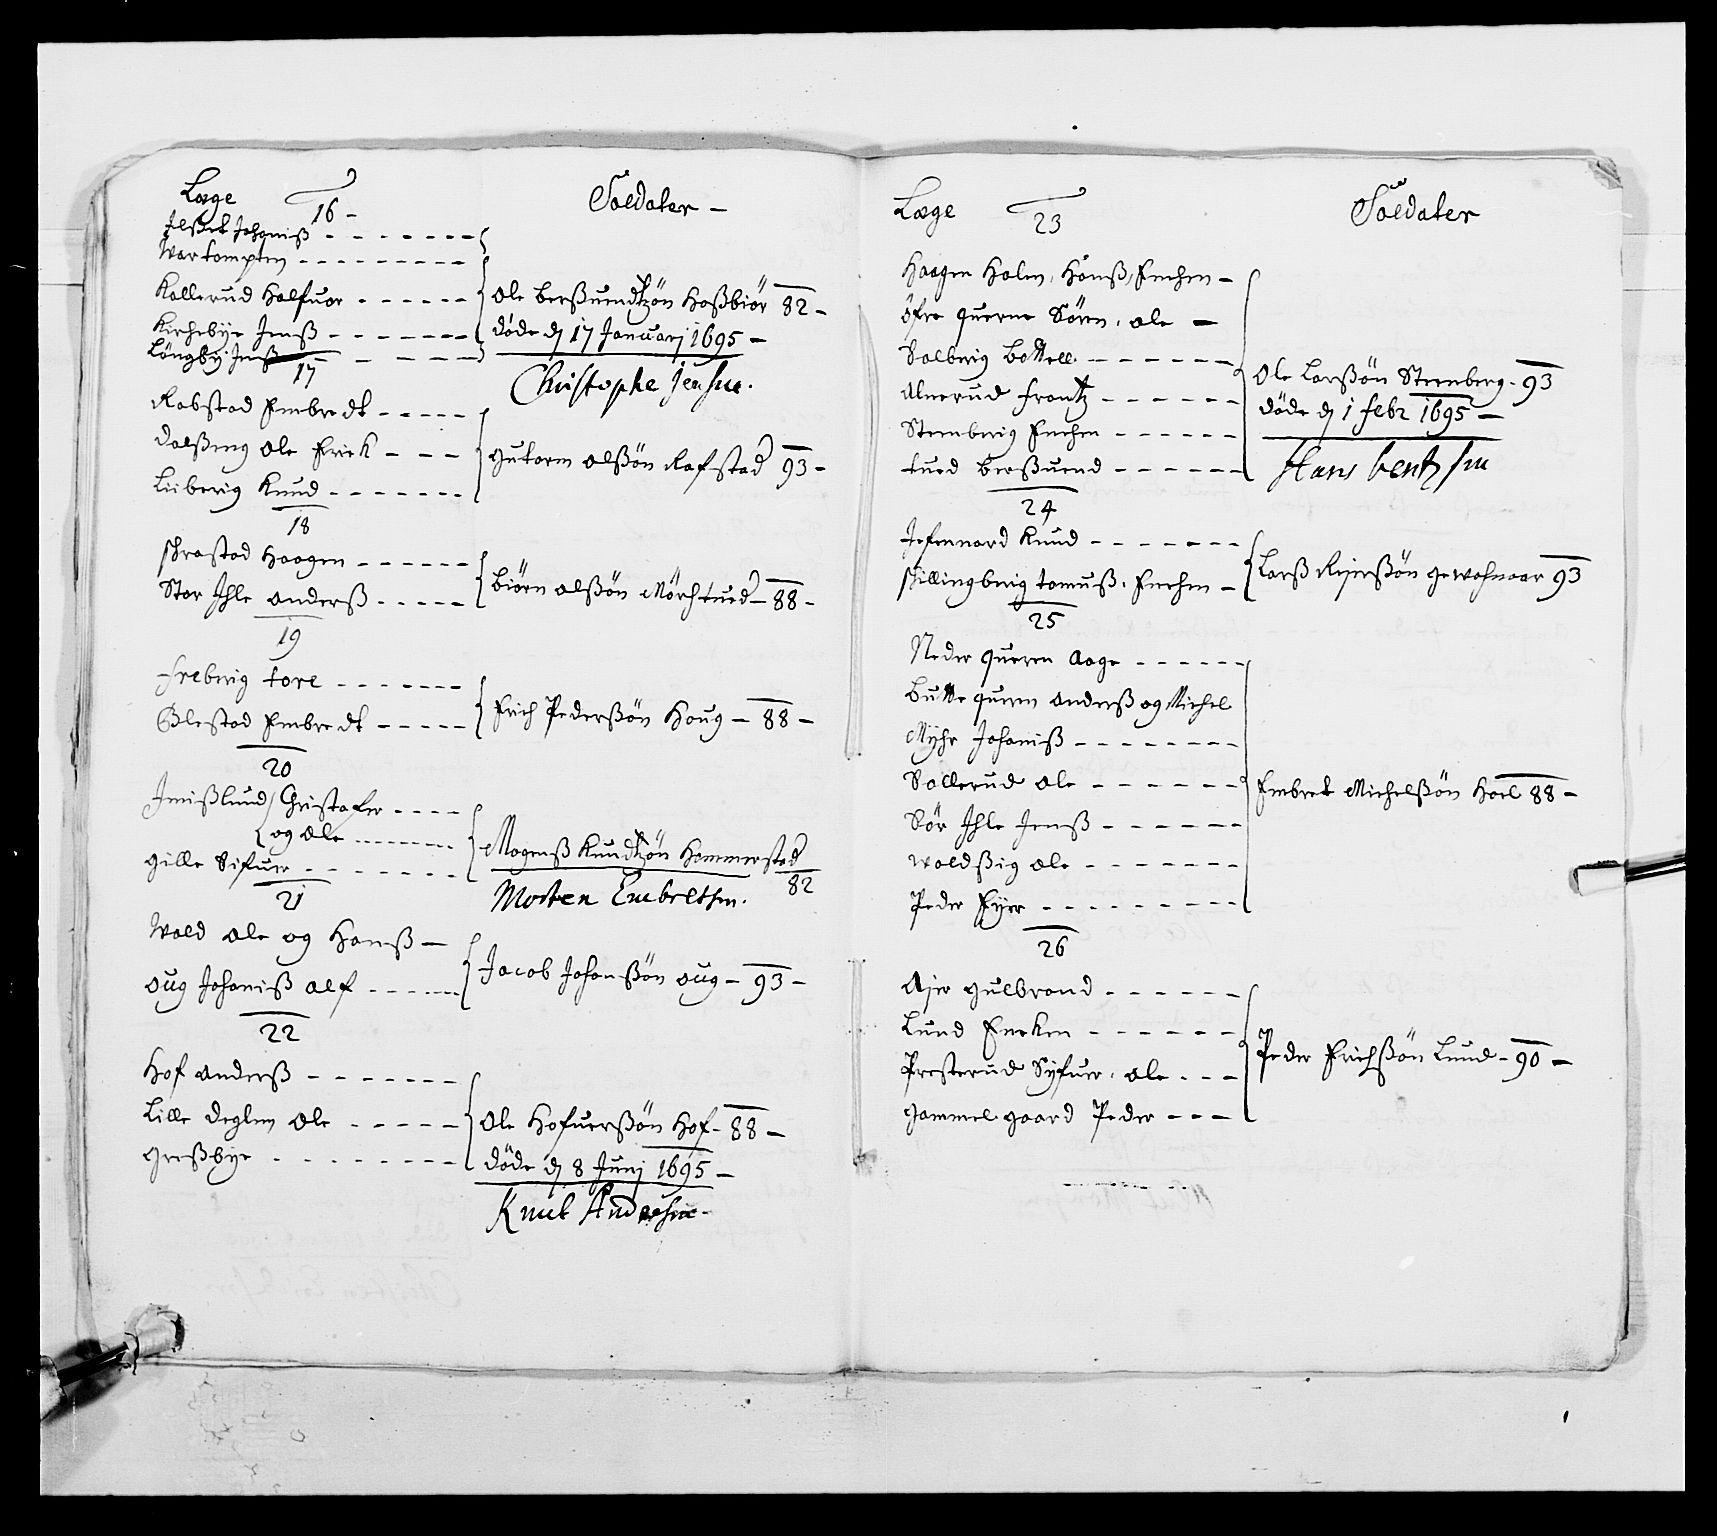 Læge 16 - Soldater -
Johaniß - - - - - - -
Wortompten - - - - - - - - -
Kollerud Halfuor - - - - - -
Kirchebÿe Jenß - - - - - -
Ole Berßuendtzön Hoßbiör 82 -
döde d 17 Januarj 1695 -
Christophe Jensen.
17
Robstad Embredt - - - - -
Dolßeng Ole Erick - - -
Liiberig Knud - - - - - - -
Gutorm Olßön Rafstad 93 -
18
Skrastad Haagen - - - - - -
Stor Ihle Anderß - - - - -
Biörn Olßön Mörchtued - 88 -
19
Freberig Tore - - - - - - -
Ølestad Embredt - - - - -
Erich Pederßön Houg - 88 -
20
Jmißlund Christofer - - - -
og Ole - - - - - -
Gille Sifuer - - - - - - -
Mogenß Knudtzön Hammerstad
82
Morten Embretsen.
21
Wold Ole og Hanß -
Oug Johaniß Alf - - - - -
Jacob Johanßön Oug - 93 -
22
Hof Anderß - - - - - - -
Lille Deglen Ole - - - - -
Greßbÿe - - - - - - - -
Ole Hofuerßön Hof - 88 -
döde d 8 Junj 1695 -
Knut Andersen -
Læge 23 Soldater
Haagen Holen, Hanß, Enchen -
Öfre Querne Sören, Ole -
Solberig Bottell - - - - - -
Alnerud Frantz - - - - - -
Steenberig Enchen - - - - - -
Tued Berßuend - - - - - -
Ole Larßön Steenberg - 93
döde d 1 Febr 1695 -
Hans bentzsen
24
Jefennard Knud - - - - - - -
Skillingberig Tomuß, Enchen -
Larß Rejerßön Gewohnaar 93
25
Neder Queren Aage - - - - - -
Butte Queren Anderß og Michel
Mÿhr Johaniß - - - - - - - -
Sollerud Ole - - - - - -
Sör Ihle Jenß - - - - - -
Woldßig Ole - - - - - - -
Peder Eÿer - - - - - - - - -
Embret Michelßön Hoel 88 -
26
Ajer Gulbrand - - - - - -
Lund Encken - - - - - -
Presterud Sÿfuer, Ole - - -
Gammelgaard Peder - - -
Peder Erichßön Lund - 90 -